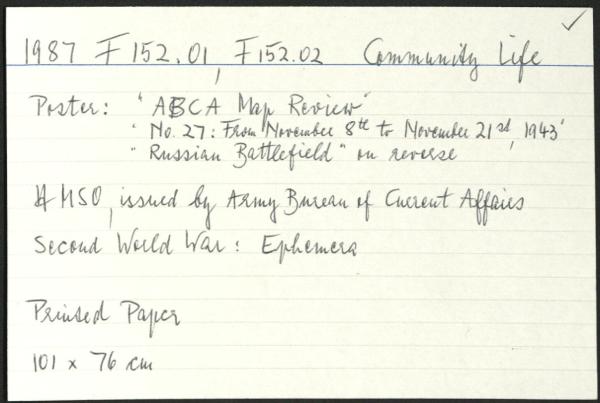 1987 F152.01, F152.02 Community Life
Poster: "ABCA Map Review"
'No. 27: From November 8th to November 21st, 1943'
"Russian Battlefield" on reverse
HMSO, issued by Army Bureau of Current Affairs
Second World War: Ephemera
Printed Paper
101 x 76 cm